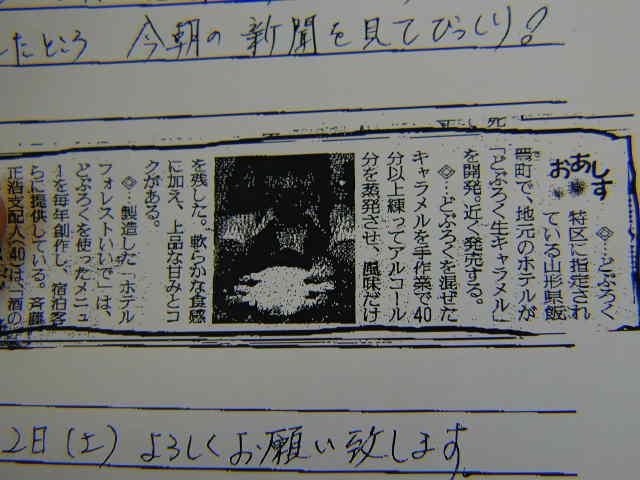 したところ 今朝の新聞を見てびっくり!
おあしす
◇…どぶろく
特区に指定され
ている山形県飯
豊町で、地元のホテルが
「どぶろく生キャラメル」
を開発。近く発売する。
◇…どぶろくを混ぜた
キャラメルを手作業で40
分以上練ってアルコール
分を蒸発させ、風味だけ
を残した。軟らかな食感
に加え、上品な甘みとコ
クがある。
◇…製造した「ホテル
フォレストいいで」は、
どぶろくを使ったメニュ
ーを毎年創作し、宿泊客
らに提供している。斉藤
正酒支配人(40)は、酒の
2日(土) よろしくお願い致します。